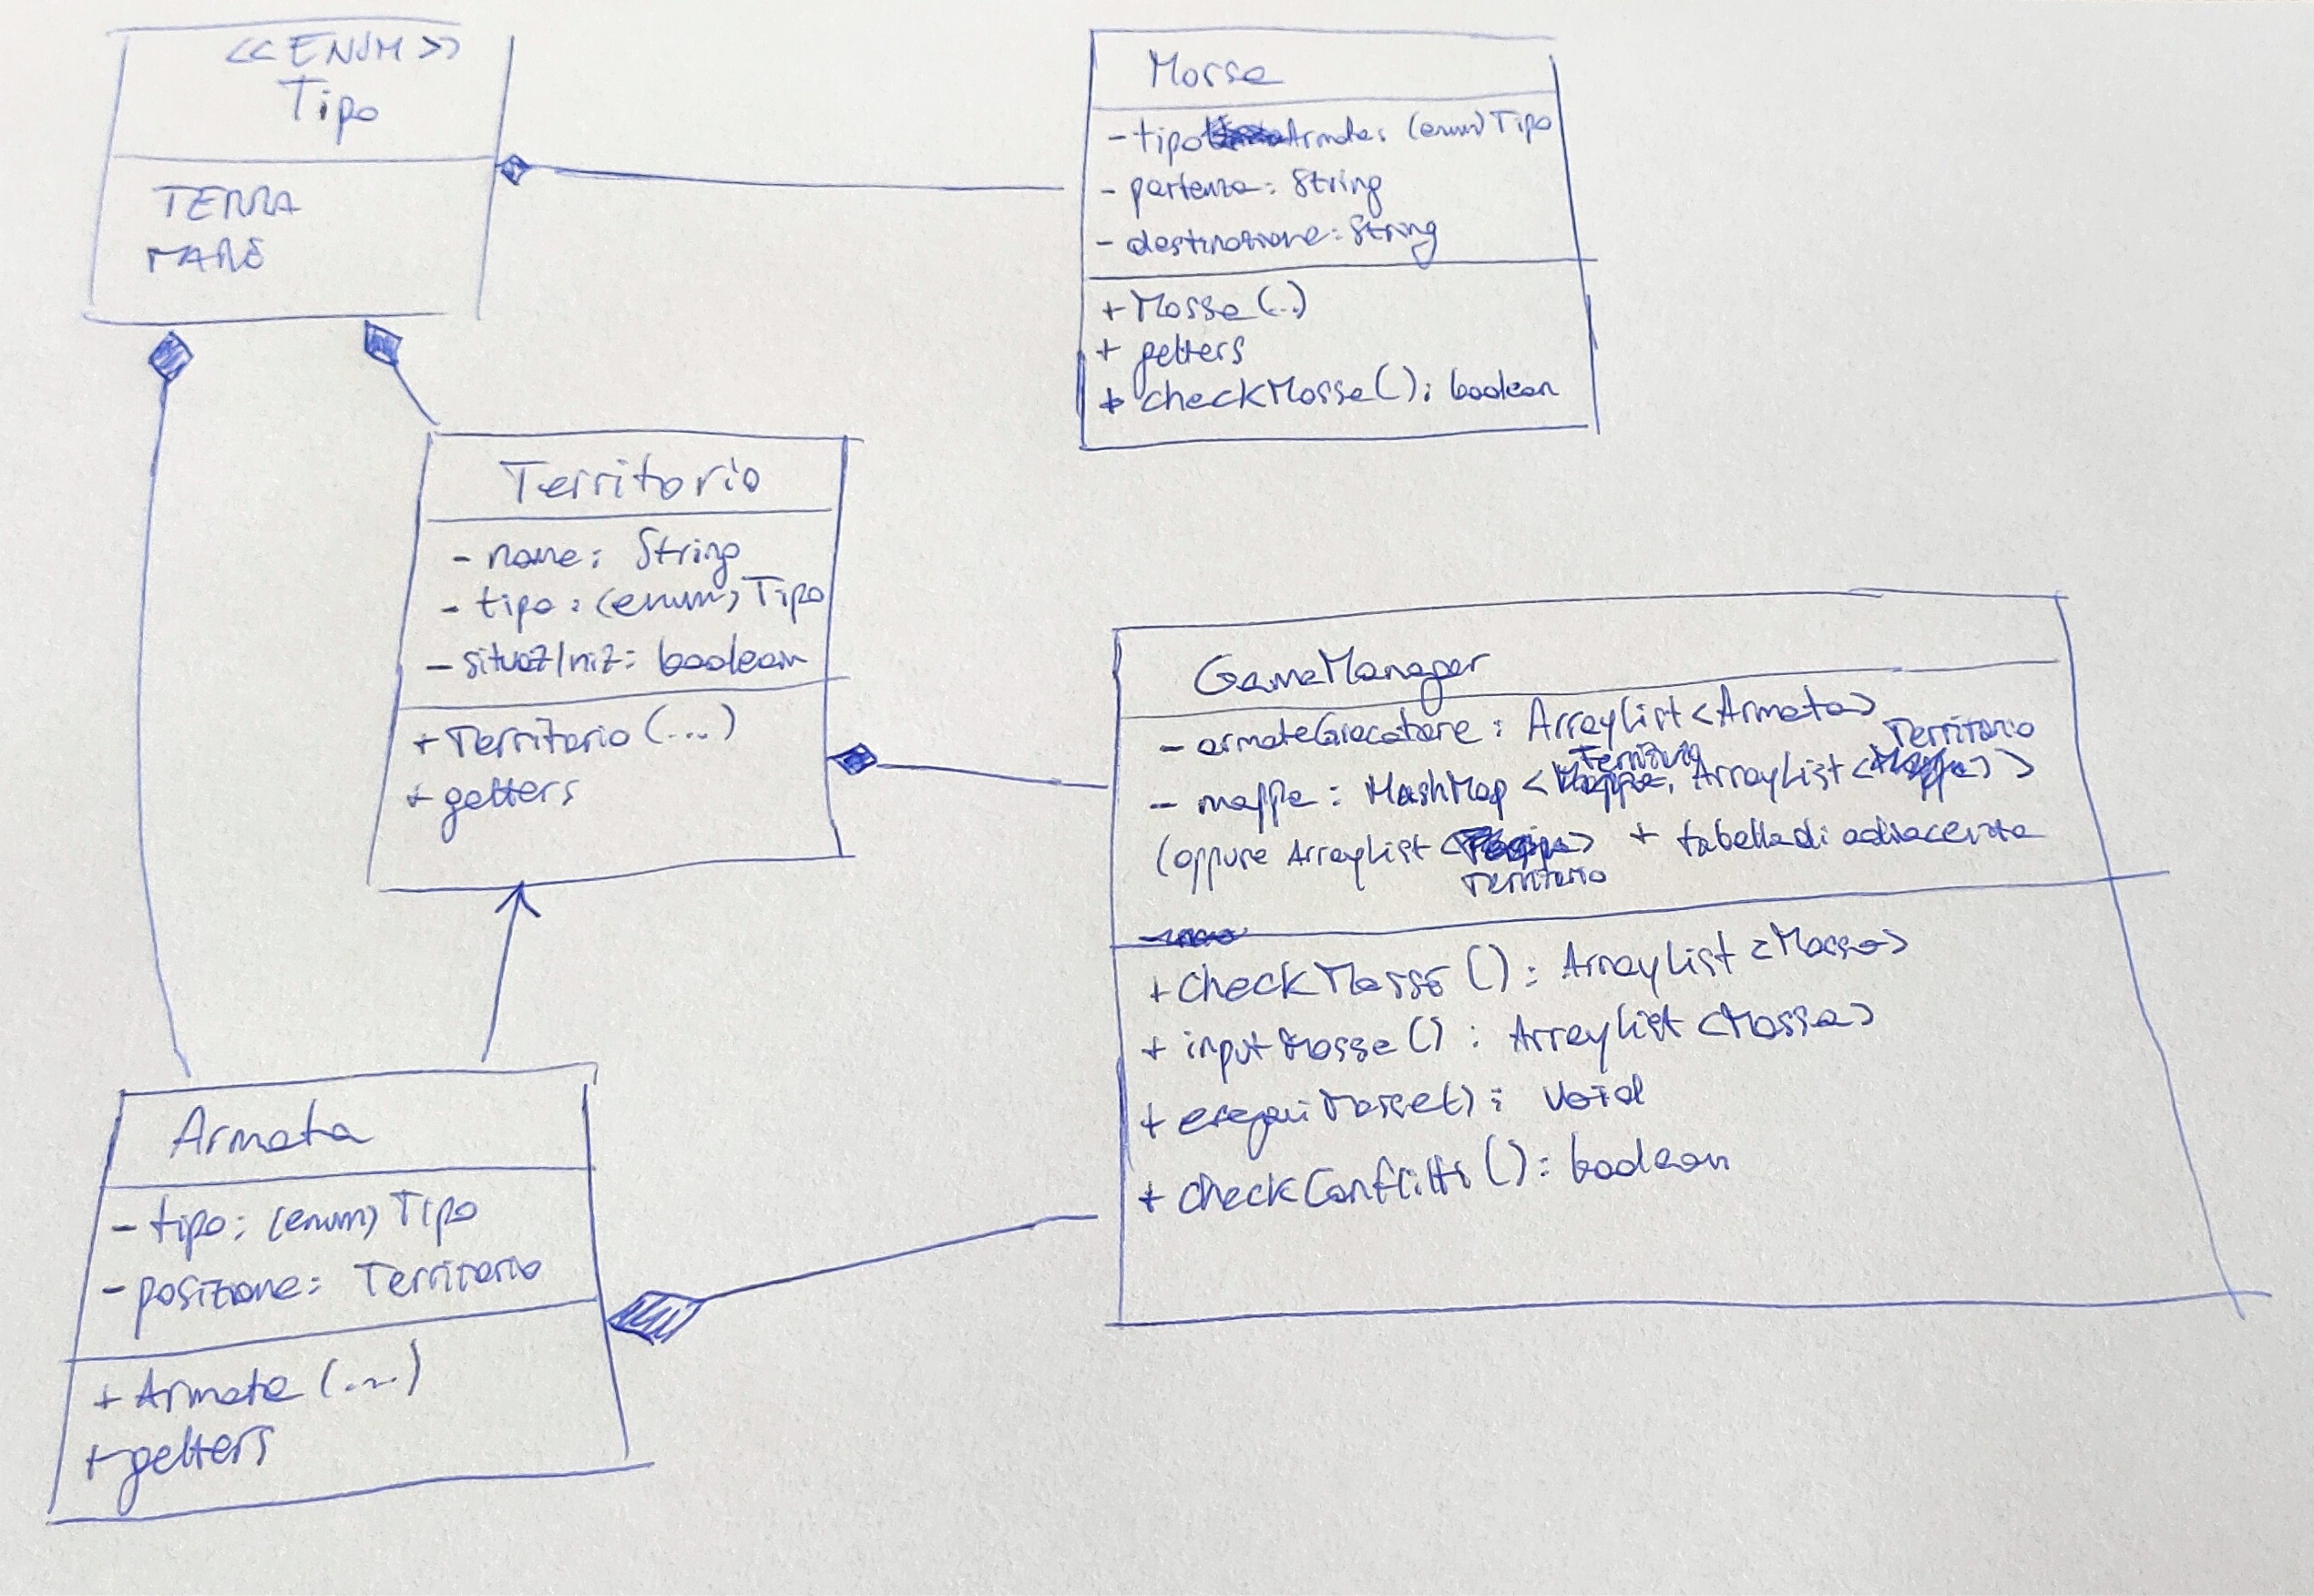 <<ENUM>>
Tipo
TERRA
MARE
Mossa
- tipo Armata: (enum) Tipo
- partenza: String
- destinazione: String
+ Mossa (..)
+ getters
+ checkMossa(): boolean
Territorio
- nome: String
- tipo: (enum) Tipo
- situazIniz: boolean
+ Territorio (...)
+ getters
GameManager
- armateGiocatore: ArrayList<Armata>
- mappa: HashMap <Territorio, ArrayList<Territorio>>
(oppure ArrayList <Territorio> + tabella di adiacenza
+ checkMosse (): ArrayList <Mossa>
+ inputMosse (): ArrayList <Mossa>
+ eseguiMosse(): void
+ checkConflitti (): boolean
Armata
- tipo: (enum) Tipo
- posizione: Territorio
+ Armata (...)
+ getters